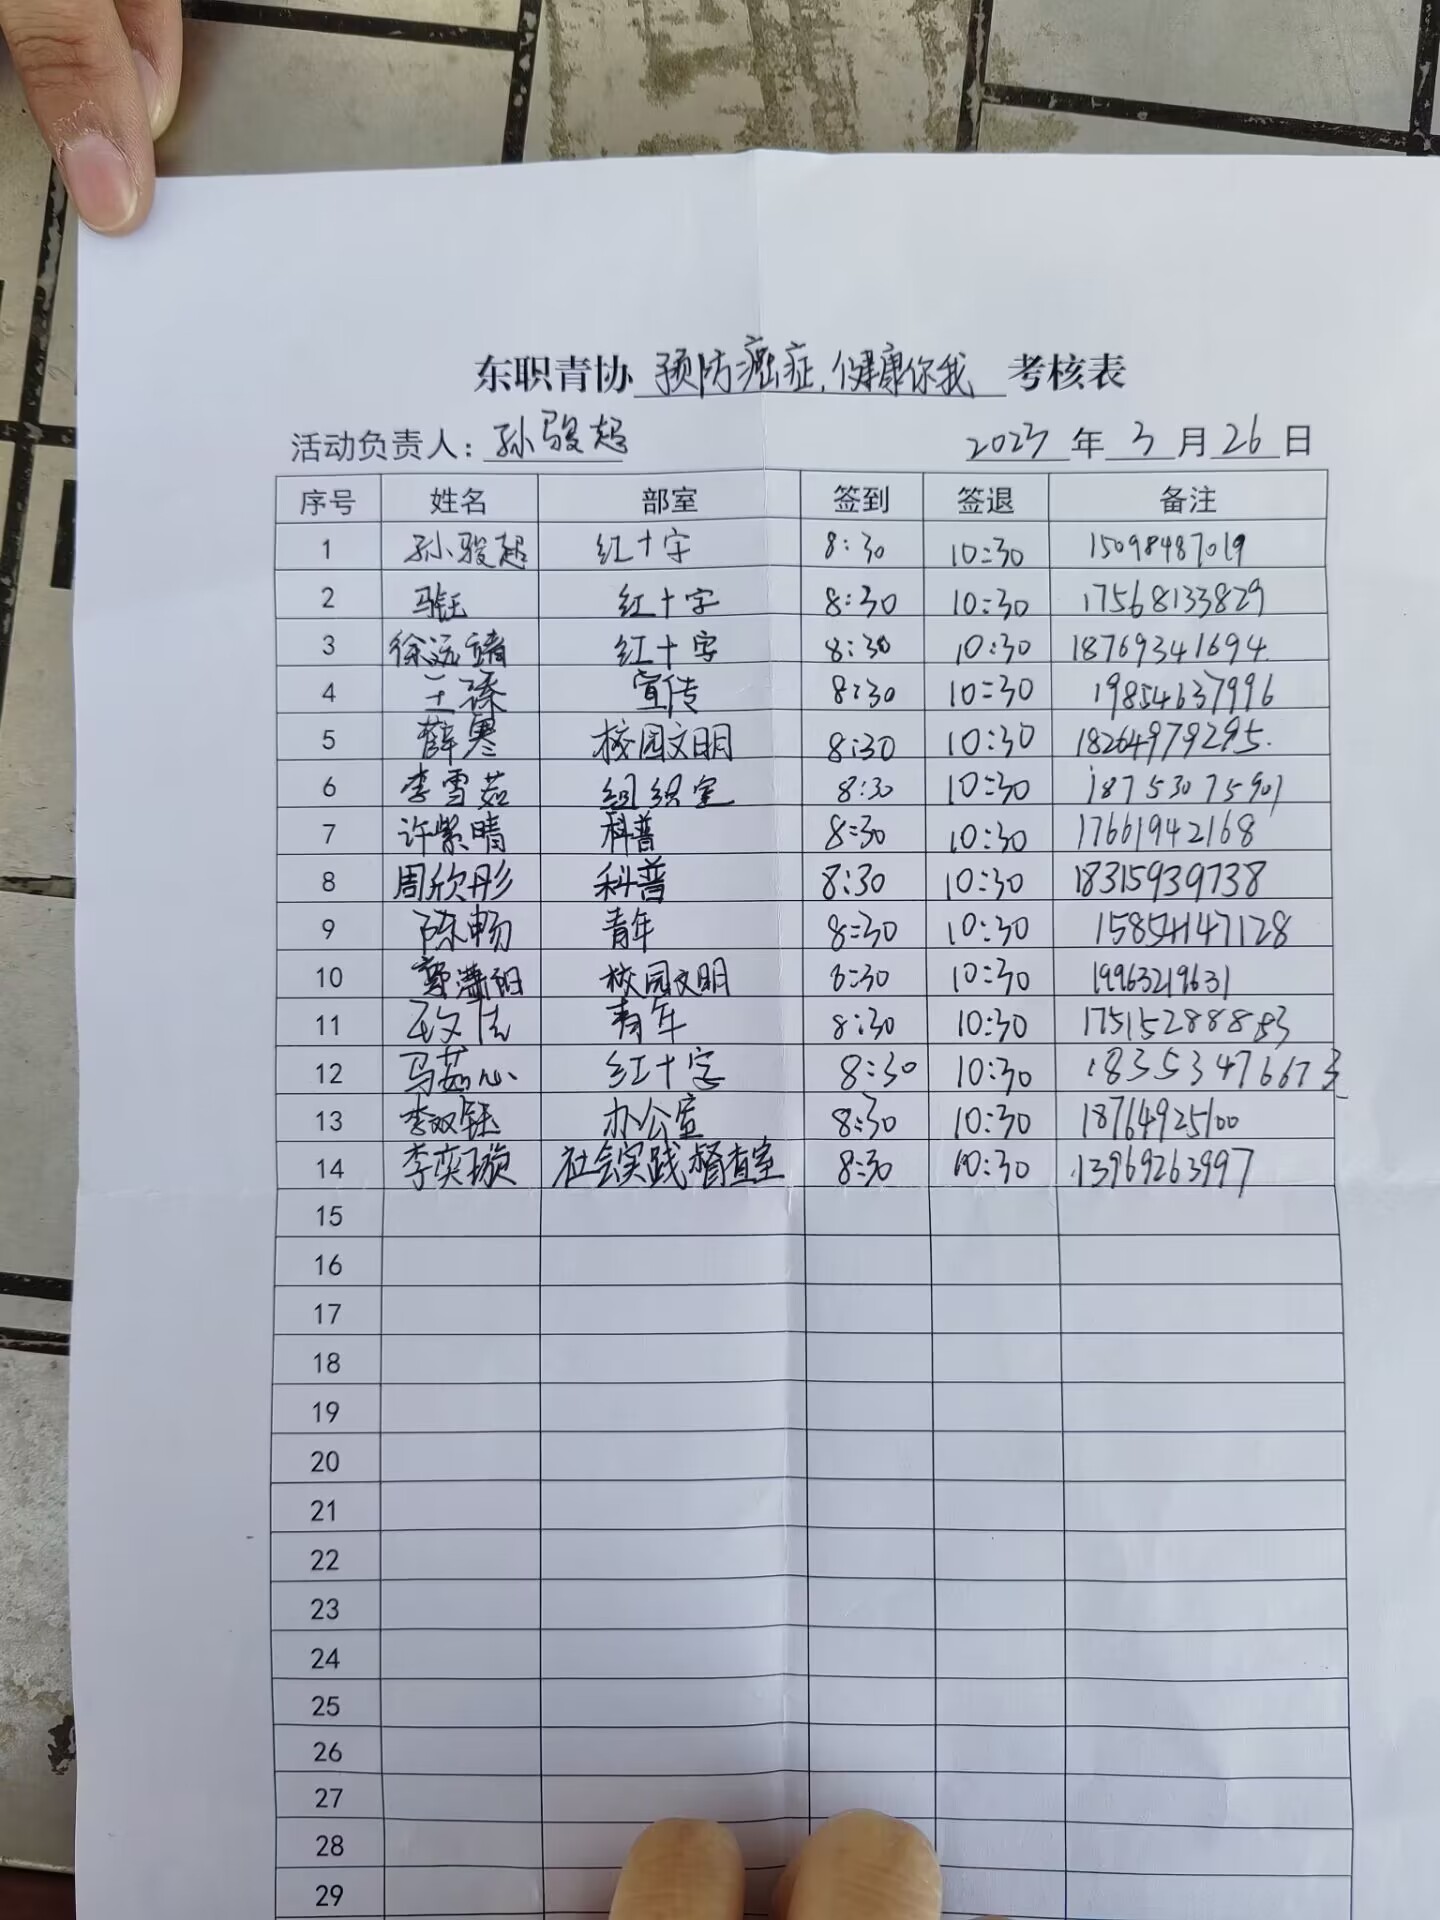 东职青协 预防癌症,健康你我 考核表
活动负责人: 孙骏起 2023 年 3 月 26 日
序号 姓名 部室 签到 签退 备注
1 孙骏起 红十字 8:30 10:30 15098487019
2 马钰 红十字 8:30 10:30 17568133829
3 徐远靖 红十字 8:30 10:30 18769341694.
4 王 宣传 8:30 10:30 19854637996
5 薛寒 校园文明 8:30 10:30 18264979295.
6 李雪茹 组织室 8:30 10:30 18753075901
7 许紫晴 科普 8:30 10:30 17661942168
8 周欣彤 科普 8:30 10:30 18315939738
9 陈畅 青年 8:30 10:30 15854147128
10 校园文明 8:30 10:30 19963219631
11 青年 8:30 10:30 17515288883
12 马茹心 红十字 8:30 10:30 18353476673
13 李双钰 办公室 8:30 10:30 18764925100
14 李奕璇 社会实践督查室 8:30 10:30 13969263997
15
16
17
18
19
20
21
22
23
24
25
26
27
28
29